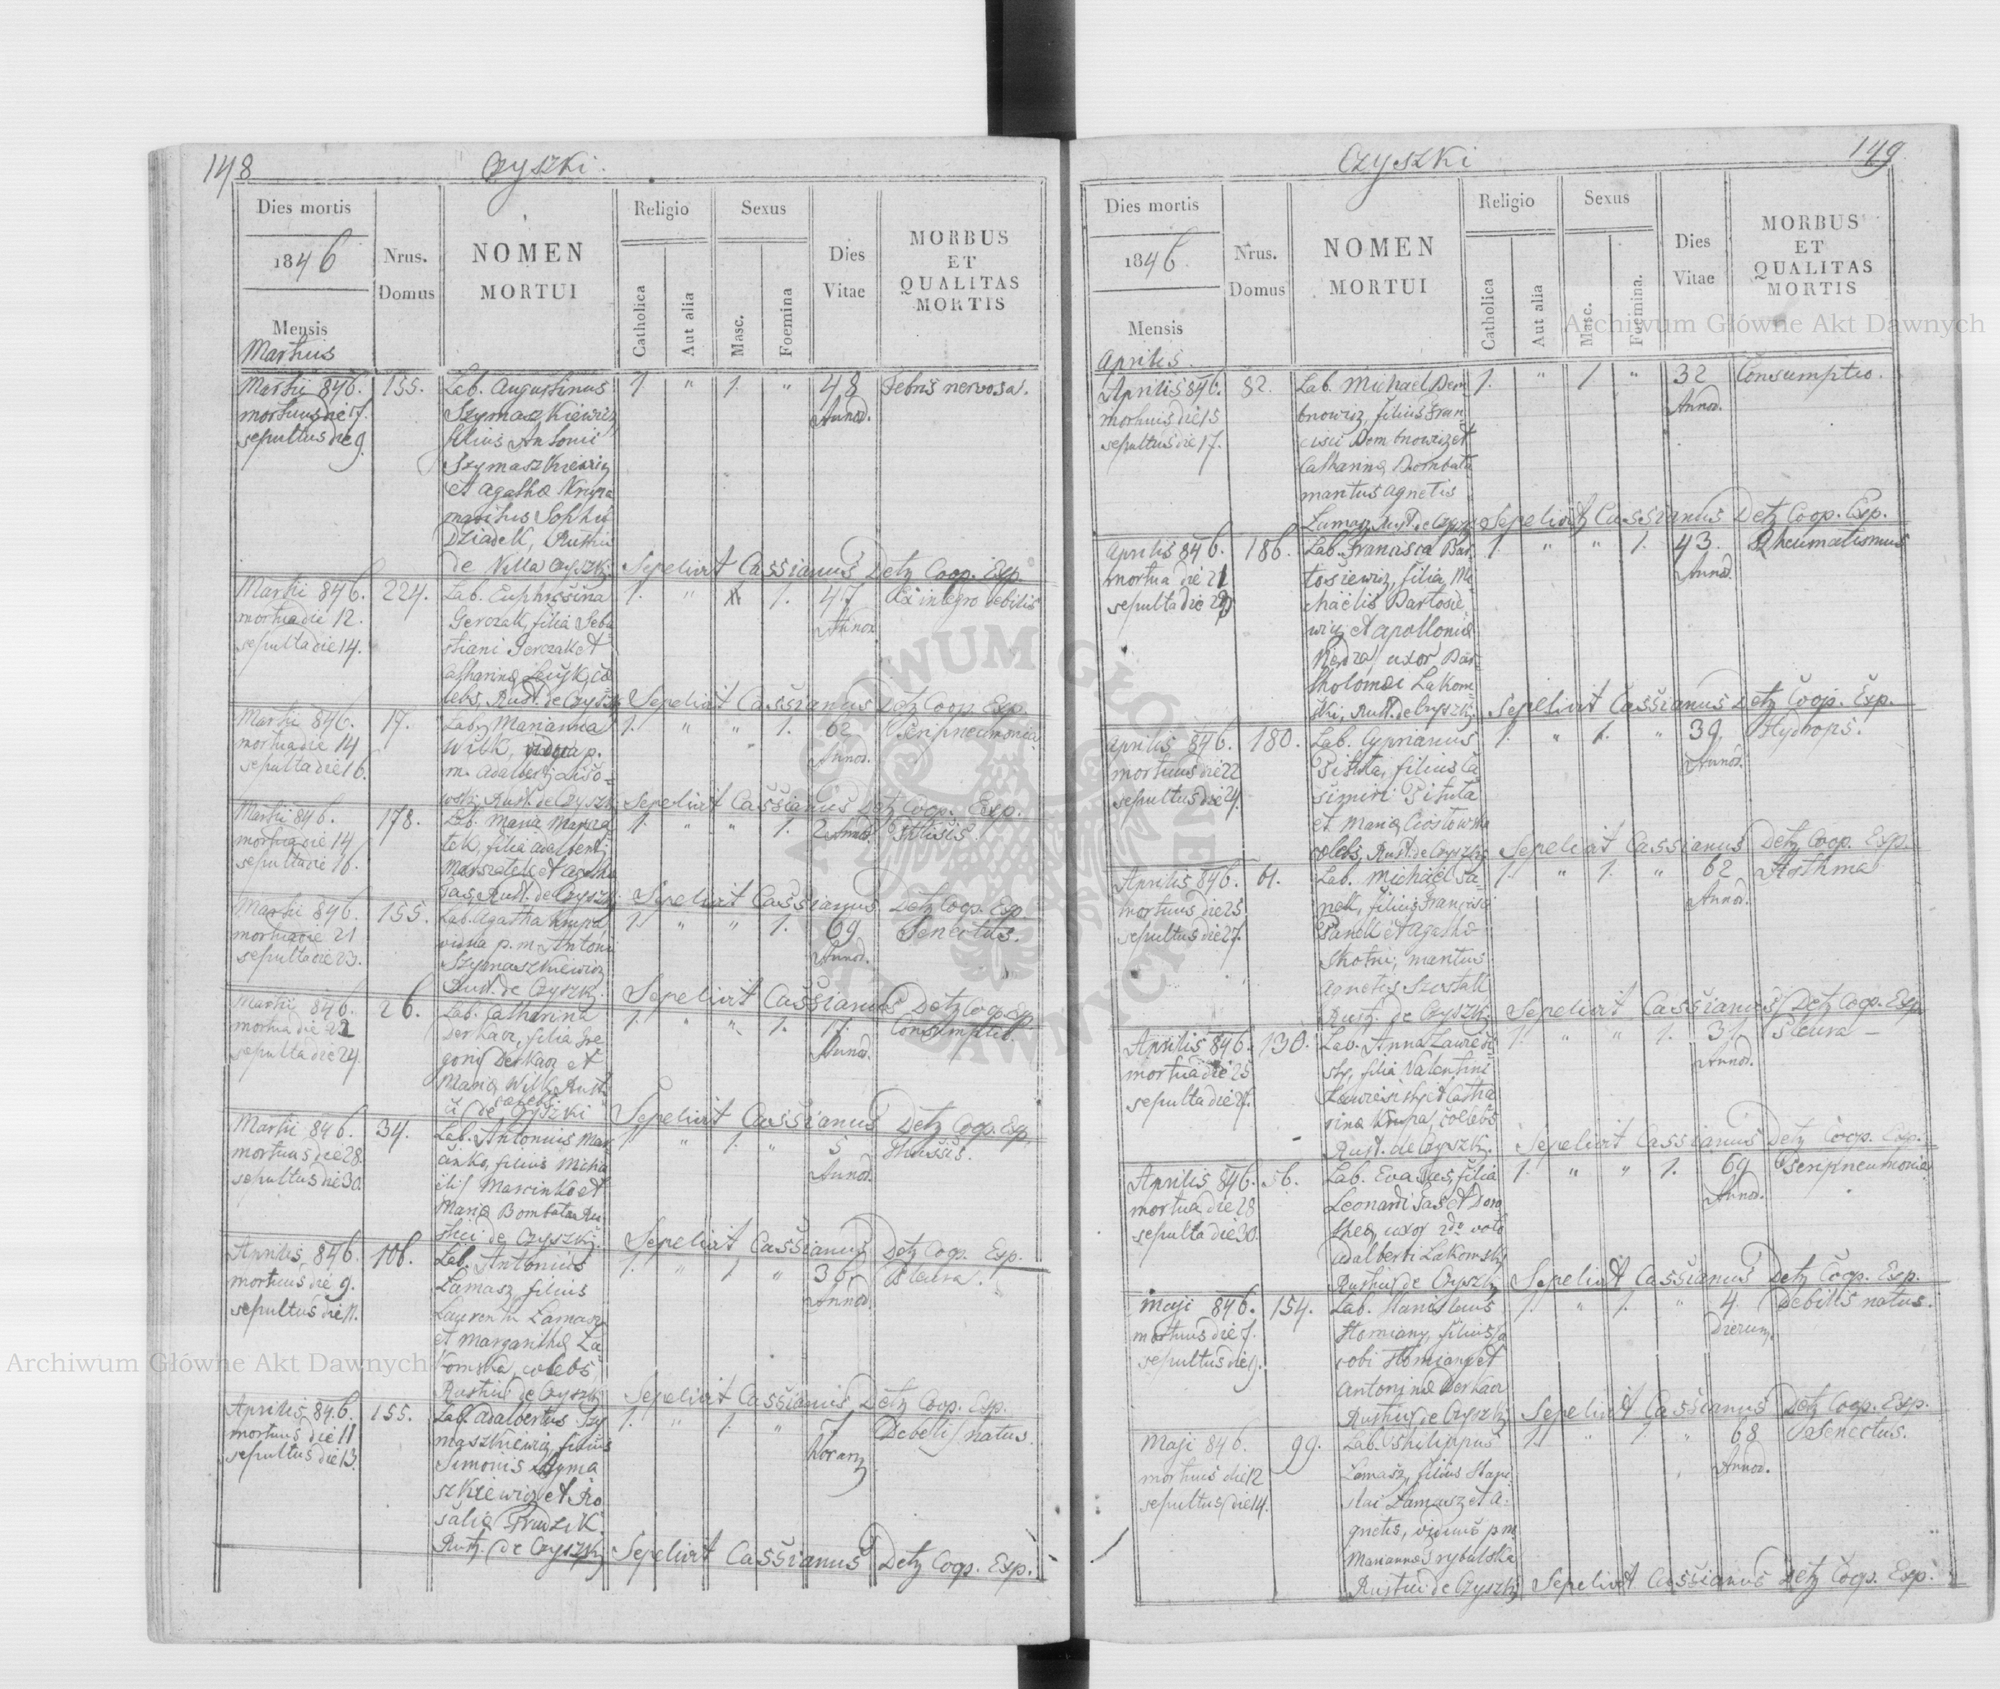 148
Czyszki.
Dies mortis
1846
Mensis
Martius
Nrus.
Domus
NOMEN
MORTUI
Religio
Catholica
Aut alia
Sexus
Masc.
Foemina
Dies
Vitae
MORBUS
ET
QUALITAS
MORTIS
Martii 846. 155. Lab. Augustinus 1. " 1. " 48 Febris nervosa.
mortuus die 17. Szymaszkiewicz Annor.
sepultus die 9. filius Antonii
Szymaszkiewicz
et Agathae Krupa
maritus Sophii
Dziadek, Rustici
de Villa Czyszki Sepelivit Cassianus Detz Coop. Exp.
Martii 846. 224. Lab. Euphrosina 1. " 1. 47 Ex integro debilis
mortua die 12. Gerczak, filia Seba Annor
sepulta die 14. stiani Gerczak et
Catharina
lebs, Rust. de Czyszk Sepelivit Cassianus Detz Coop Exp.
Martii 846. 17. Lab. Marianna 1. " " 1. 62 Peripneumonia
mortua die 14 Wilk, vidua p. Annor.
sepulta die 16. m. Adalberti
Rust. de Czyszk Sepelivit Cassianus Detz Coop. Exp.
Martii 846. 178. Lab. Maria Marsza 1. " " 1. 2 Annor. Thusis
mortua die 14 tek, filia Adalberti
sepulta die 16. Marszatek et Agatha
Sas, Rust. de Czyszk. Sepelivit Cassianus Detz Coop. Exp.
Martii 846. 155. Lab. Agatha Krupa 1. " " 1. 69 Senectus.
mortua die 21 vidua p. m. Antoni Annor.
sepulta die 23. Szymaszkiewicz
Rust. de Czyszk. Sepelivit Cassianus Detz Coop. Exp
Martii 846. 26. Lab. Catharina 1. " " 1. 17. Consumptio.
mortua die 22 Derkacz, filia Gre Annor.
sepulta die 24. gorii Derkacz et
Maria Wilk, Rust.
caelebs
ci de Czyszki Sepelivit Cassianus Detz Coop. Exp.
Martii 846. 34. Lab. Antonius Mar 1. " 1. " 5 Thussis.
mortuus die 28. cinko, filius Micha Annor.
sepultus die 30. elis Marcinko et
Maria Bombata Ru
stici de Czyszki. Sepelivit Cassianus Detz Coop. Exp.
Aprilis 846. 106. Lab. Antonius 1. " 1. " Pleura.
mortuus die 9. Lamasz filius Annor.
sepultus die 11. Laurentii Lamasz
et Margarithae La
komska, caelebs,
Rustici de Czyszki Sepelivit Cassianus Detz Coop. Exp.
Aprilis 846. 155. Lab. Adalbertus Szy 1. " 1. " 7 Debelis natus.
mortuus die 11 maszkiewicz, filius horarum
sepultus die 13. Simonis Szyma
szkiewicz et Ro
salia Frudzik
Rust. de Czyszki Sepelivit Cassianus Detz Coop. Exp.
149
Czyszki
Dies mortis
1846.
Mensis
Aprilis.
Nrus.
Domus
NOMEN
MORTUI
Religio
Catholica
Aut alia
Sexus
Masc.
Foemina.
Dies
Vitae
MORBUS
ET
QUALITAS
MORTIS
Aprilis 846. 82. Lab. Michael Dem 1. " 1 " 32 Consumptio.
mortuus die 15 bnowicz, filius Fran Annor.
sepultus die 17. cisci Dembnowicz et
Catharina Bombata
maritus Agnetis
Lamasz Rust. de Czyszki Sepelivit Cassianus Detz Coop. Exp.
Aprilis 846. 186. Lab. Francisca Bar 1. " " 1. 43. Rheumatismus
mortua die 21 tosiewicz, filia Mi Annor.
sepulta die chaëlis Bartosie
wicz et Apollonia
Nerdza, uxor Bar
tholomei Lakom
ski, Rust. de Czyszki. Sepelivit Cassianus Detz Coop. Exp.
Aprilis 846. 180. Lab. Cyprianus 1. " 1. " 39. Hydrops.
mortuus die 22 Pituta, filius Ca Annor.
sepultus die 24. simiri Pituta
et Maria Ciostowska
caelebs, Rust. de Czyszki Sepelivit Cassianus Detz Coop. Exp.
Aprilis 846. 61. Lab. Michaël Pa 1. " 1. " 62 Asthma
mortuus die 25 nek, filius Francisci Annor.
sepultus die 27. Panek et Agatha
Skotni, maritus
Agnetis Szostak
Rust. de Czyszki Sepelivit Cassianus Detz Coop. Exp.
Aprilis 846. 130. Lab. Anna Lawrec 1. " " 1. 31 Pleura
mortua die 25 sky, filia Valentini Annor.
sepulta die 27. et Catha
rina Krupa, caelebs
Rust. de Czyszki. Sepelivit Cassianus Detz Coop. Exp.
Aprilis 846. 56. Lab. Eva Sas, filia 1. " " 1. 69 Peripneumonia
mortua die 28 Leonardi Sas et Doro Annor.
sepulta die 30. thea, uxor 2do voto
Adalberti Lakomski
Rustici de Czyszki Sepelivit Cassianus Detz Coop. Exp.
Maji 846. 154. Lab. Stanislaus 1. " 1. " 4 Debilis natus.
mortuus die 7. Homiany, filius Ja dierum,
sepultus die 9. cobi Homiany et
Antonina Derkacz
Rustici de Czyszki Sepelivit Cassianus Detz Coop. Exp.
Maji 846. 99. Lab. Philippus 1. " 1. " 68 Senectus.
mortuus die 12 Lamasz, filius Stani Annor.
sepultus die 14. slai Lamasz et A
gnetis, viduus p m
Marianna Srybalska
Rustici de Czyszki Sepelivit Cassianus Detz Coop. Exp.
Archiwum Główne Akt Dawnych
Archiwum Główne Akt Dawnych
ARCHIWUM GŁÓWNE AKT DAWNYCH